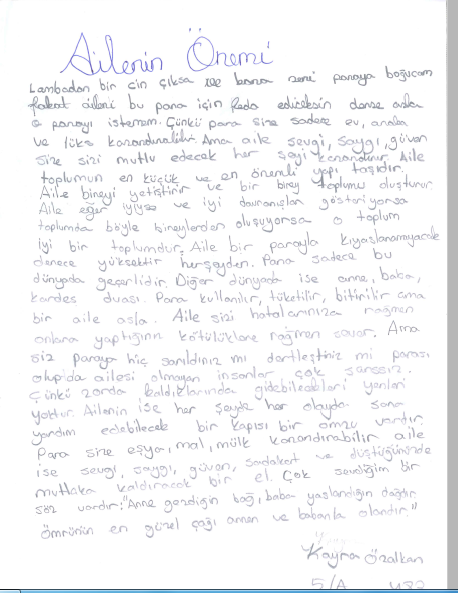 Ailenin Önemi
Lambadan bir cin çıksa ve bana seni paraya boğucam
fakat aileni bu para için feda ediceksin derse asla
o parayı istemem. Çünkü para size sadece ev, araba
ve lüks kazandırabilir. Ama aile sevgi, saygı, güven
size sizi mutlu edecek her şeyi kazandırır. Aile
toplumun en küçük ve en önemli yapı taşıdır.
Aile bireyi yetiştirir ve bir birey toplumu oluşturur.
Aile eğer iyiyse ve iyi davranışlar gösteriyorsa
toplumda böyle bireylerden oluşuyorsa o toplum
iyi bir toplumdur. Aile bir parayla kıyaslanamayacak
derece yüksektir herşeyden. Para sadece bu
dünyada geçerlidir. Diğer dünyada ise anne, baba,
kardes duası. Para kullanılır, tüketilir, bitirilir ama
bir aile asla. Aile sizi hatalarınıza rağmen
onlara yaptığınız kötülüklere rağmen sever. Ama
siz paraya hiç sarıldınız mı dertleştiniz mi parası
olupda ailesi olmayan insanlar çok şanssız.
Çünkü zorda kaldıklarında gidebilecekleri yerleri
yoktur. Ailenin ise her şeyde her olayda sana
yardım edebilecek bir kapısı bir omzu vardır.
Para size eşya, mal, mülk kazandırabilir aile
ise sevgi, saygı, güven, sadakat ve düştüğünüzde
mutlaka kaldıracak bir el. Çok sevdiğim bir
söz vardır: "Anne gezdiğin bağ, baba yaslandığın dağdır
Ömrünün en güzel çağı annen ve babanla olandır."
Kayra Özalkan
5/A 482